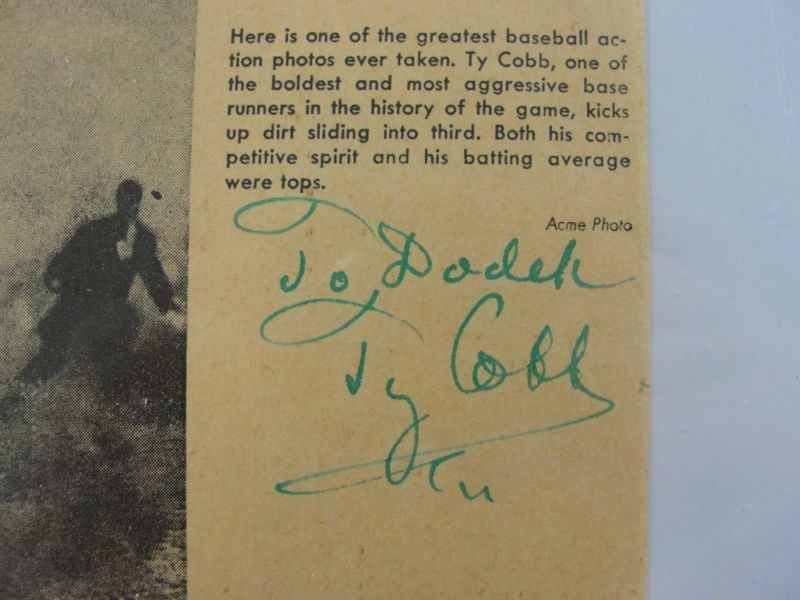 Here is one of the greatest baseball ac-
tion photos ever taken. Ty Cobb, one of
the boldest and most aggressive base
runners in the history of the game, kicks
up dirt sliding into third. Both his com-
petitive spirit and his batting average
were tops.
Acme Photo
To, Dodek
Ty Cobb